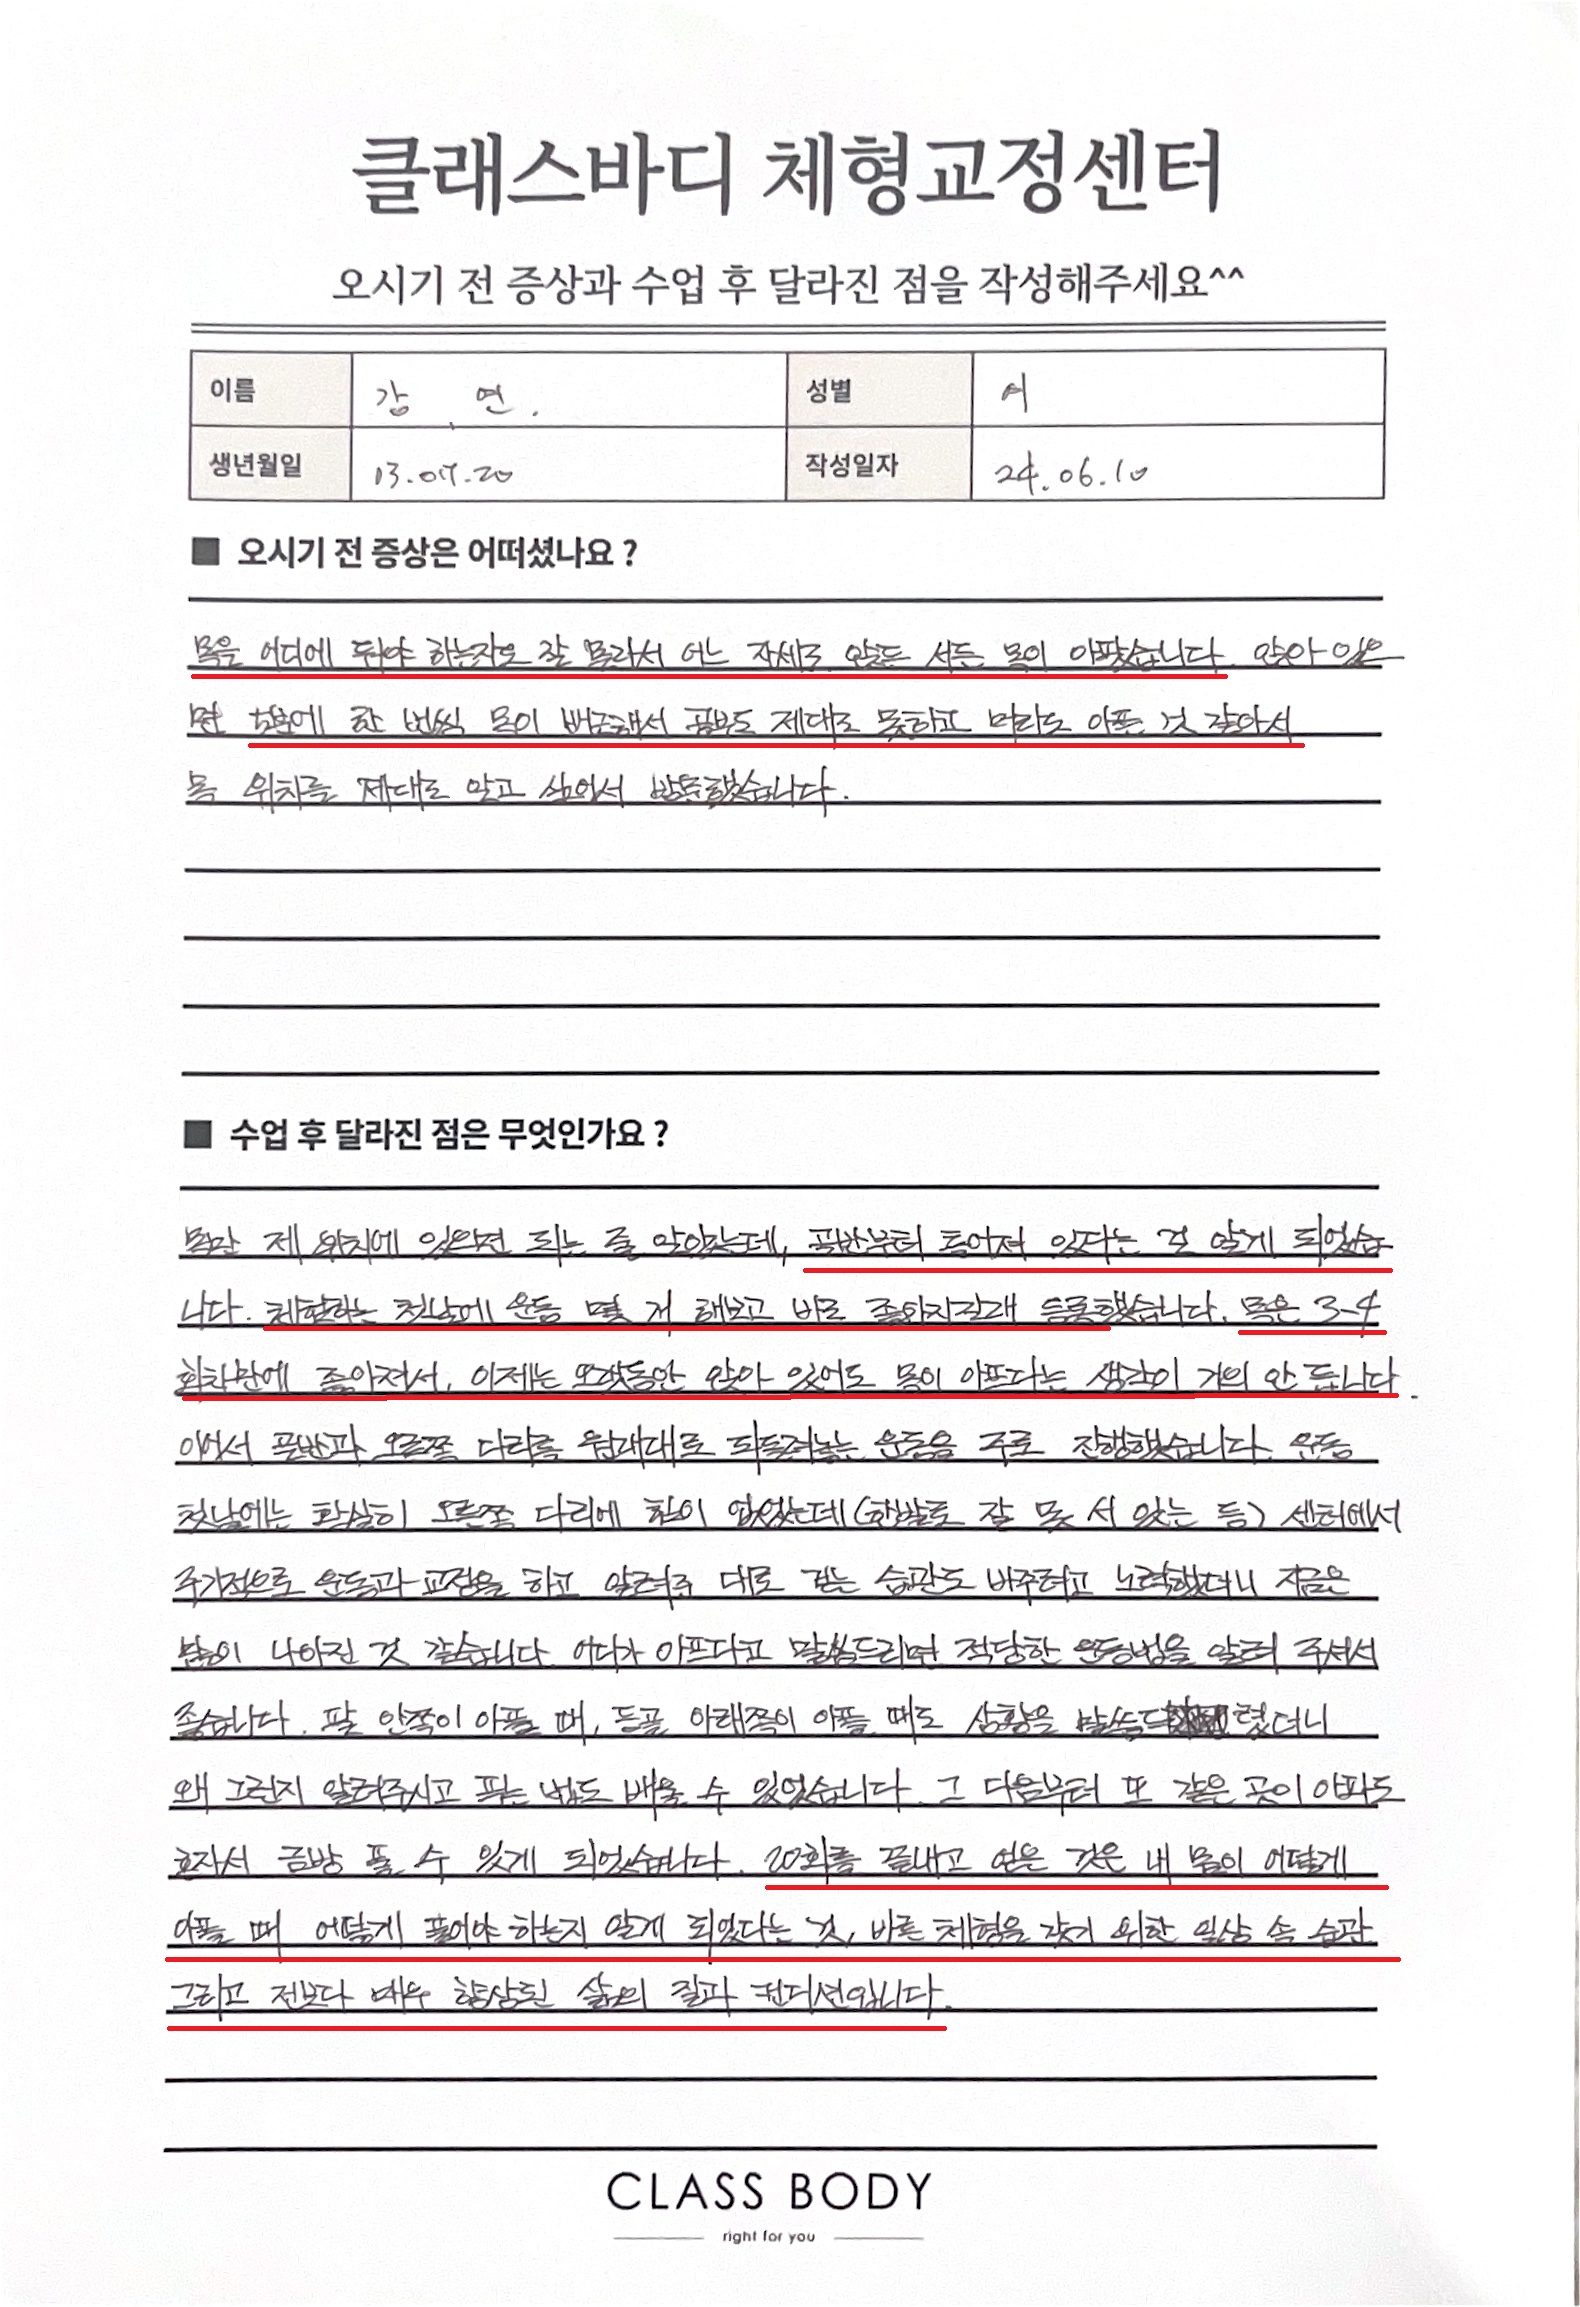 클래스바디 체형교정센터
오시기 전 증상과 수업 후 달라진 점을 작성해주세요^^
이름 강 연. 성별 여
생년월일 03.07.20 작성일자 24.06.10
■ 오시기 전 증상은 어떠셨나요 ?
목을 어디에 둬야 하는지도 잘 몰라서 어느 자세로 앉든 서든 목이 아팠습니다. 앉아 있으
면 한 번씩 목이 뻐근해서 공부도 제대로 못하고 머리도 아픈 것 같아서
목 위치를 제대로 알고 싶어서 방문했습니다.
■ 수업 후 달라진 점은 무엇인가요 ?
목만 제 위치에 있으면 되는 줄 알았는데, 골반부터 틀어져 있다는 걸 알게 되었습
니다. 체험하는 첫날에 운동 몇 개 해보고 바로 좋아지길래 등록했습니다. 목은 3-4
회차만에 좋아져서, 이제는 오랫동안 앉아 있어도 목이 아프다는 생각이 거의 안 듭니다.
이어서 골반과 오른쪽 다리를 원래대로 되돌려놓는 운동을 주로 진행했습니다. 운동
첫날에는 확실히 오른쪽 다리에 힘이 없었는데(한발로 잘 못 서 있는 등) 센터에서
주기적으로 운동과 교정을 하고 알려주 대로 걷는 습관도 바꾸려고 노력했더니 지금은
많이 나아진 것 같습니다. 어디가 아프다고 말씀드리면 적당한 운동법을 알려 주셔서
좋습니다. 팔 안쪽이 아플 때, 등골 아래쪽이 아플 때도 상황을 말씀드렸더니
왜 그런지 알려주시고 푸는 법도 배울 수 있었습니다. 그 다음부터 또 같은 곳이 아파도
혼자서 금방 풀 수 있게 되었습니다. 20회를 끝내고 얻은 것은 내 몸이 어떻게
아플 때 어떻게 풀어야 하는지 알게 되었다는 것, 바른 체형을 갖기 위한 일상 속 습관
그리고 전보다 매우 향상된 삶의 질과 컨디션입니다.
CLASS BODY
right for you